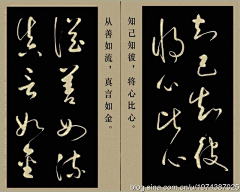 知己知彼
将心比心
知己知彼，将心比心。
从善如流，真言如金。
從善如流
真言如金
blog.sina.com.cn/u/1074387025